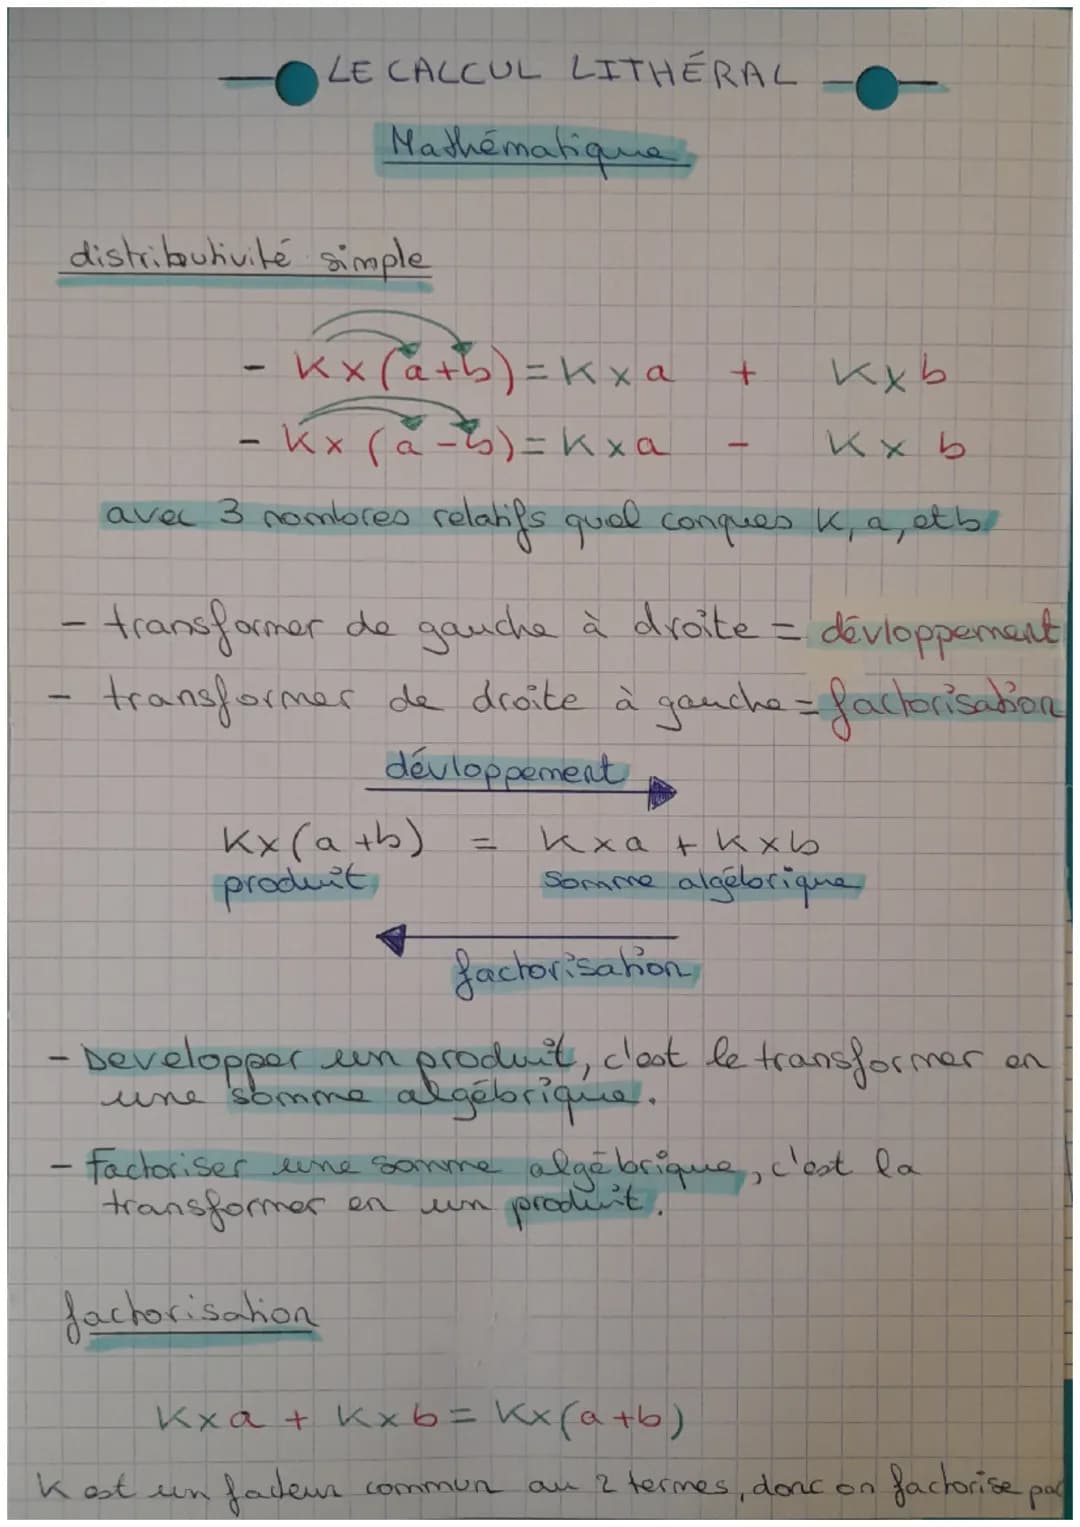 LE CALCUL LITHÉRAL
Mathématique
distributivité simple
- K×(a+b)=K×a + K×b
- K×(a-b)=K×a - K×b
avec 3 nombres relatifs quel conques K, a, et b
- transformer de gauche à droite = dévloppement
- transformer de droite à gauche = factorisation
dévloppement
K×(a+b) = K×a + K×b
produit somme algébrique
factorisation
- Developper un produit, c'est le transformer en
une somme algébrique.
- Factoriser une somme algébrique, c'est la
transformer en un produit.
factorisation
K×a + K×b = K×(a+b)
K est un facteur commun au 2 termes, donc on factorise